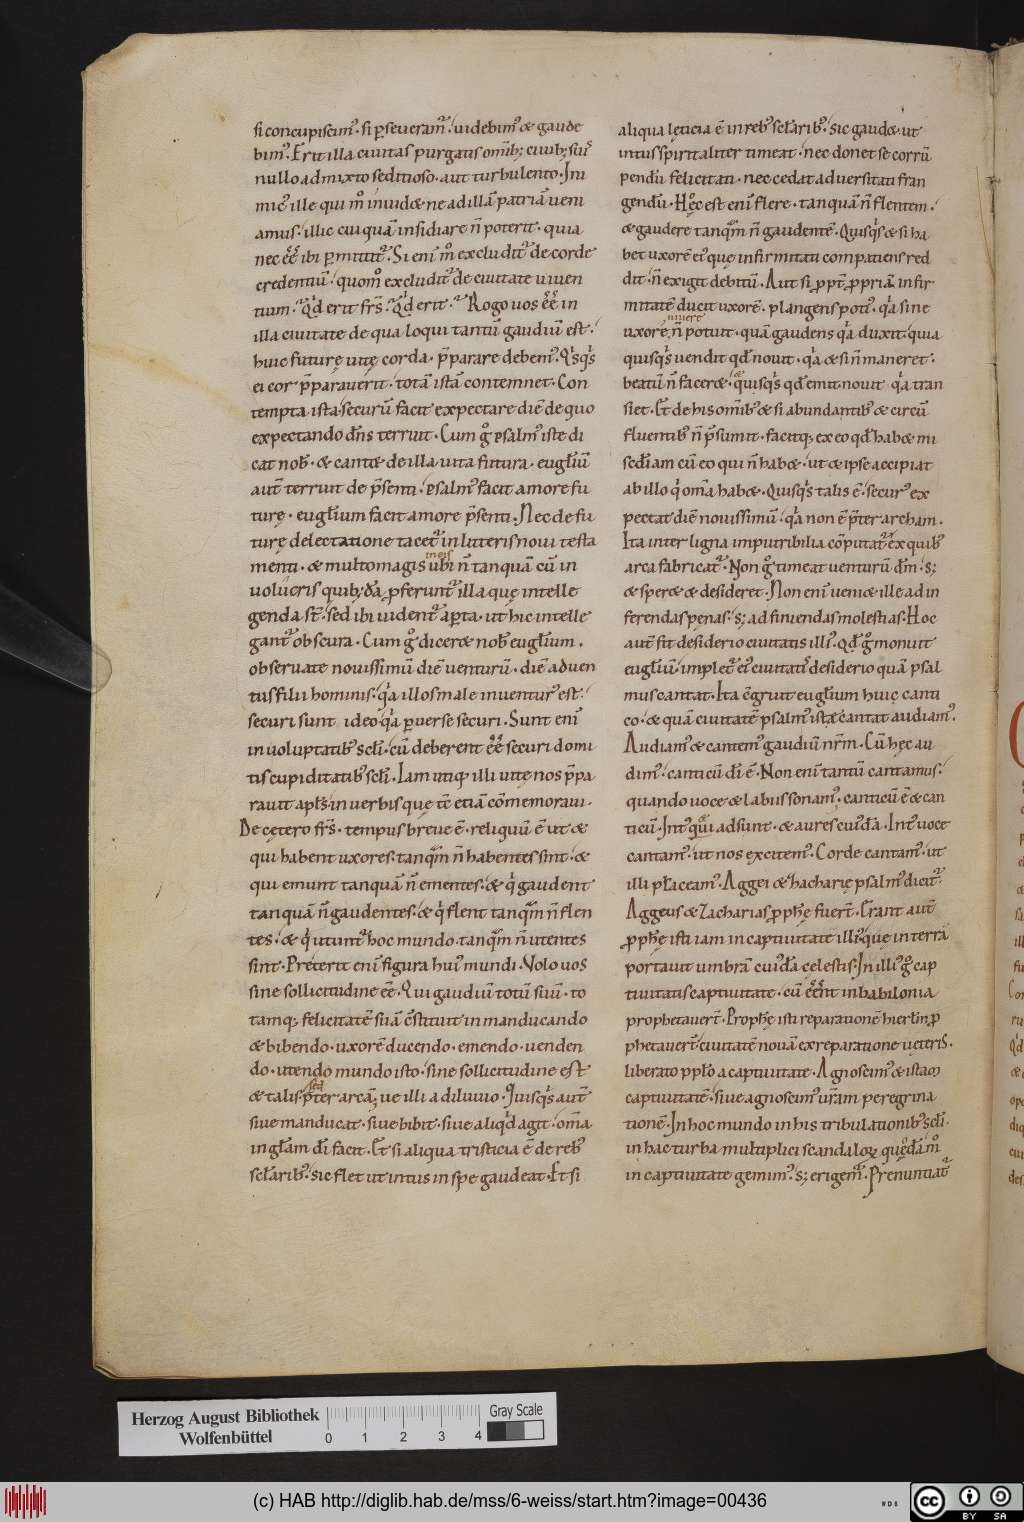 si concupiscim᷒. si ꝑseueram᷒. uidebim᷒ & gaude
bim᷒. Erit illa ciuitas purgatis omib; ciuib; suis
nullo admixto seditioso. aut turbulento. Ini
mic᷒ ille qui m̊ inuid& ne ad illā patriā ueni
amus. illic cuiquā insidiare n̄ poterit. quia
nec ee̊ ibi ꝑmittit᷑. Si eni m̊ excludit᷑ de corde
credentiū. quom̊ excludit᷑ de ciuitate uiuen
tium. Qd erit frs̄. Qd erit. Rogo uos ee̊ in
illa ciuitate de qua loqui tantū gaudiū est.
huic futurę uitę corda. p̄parare debem᷒. Qisqis
ei cor p̄parauerit. totā istā contemnet. Con
tempta ista securū facit expectare diē de quo
expectando dn̄s terruit. Cum g̊ psalm᷒ iste di
cat nob̄. & cant& de illa uita futura. eugliū
aut̄ terruit de p̄senti. psalm᷒ facit amore fu
turę. euglium facit amore p̄senti. Nec de fu
turę delectatione tacet᷑ in litteris noui testa
menti. & multo magis ubi in eis n̄ tanquā cū in
uolucris quib;dā ꝓferunt᷑ illa que intelle
genda st̄. sed ibi uident᷑ aꝑta. ut hic intelle
gant᷑ obscura. Cum g̊ dicer& nob̄ euglium.
obseruate nouissimū diē uenturū. diē aduen
tus filii hominis. qa illos male inuentur᷒ est.
securi sunt ideo qa ꝑuerse securi. Sunt eni
in uoluptatib᷒ scli. cū deberent ee̊ securi domi
tis cupiditatib᷒ scli. Iam utiq illi uitę nos p̄pa
rauit apls in uerbis que tē etiā cōmemoraui.
De cetero frs̄. tempus breue ē. reliquū ē ut &
qui habent uxores. tanqm n̄ habentes sint. &
qui emunt tanquā n̄ ementes. & qi gaudent
tanquā n̄ gaudentes. & qi flent tanqm n̄ flen
tes. & qi utunt᷑ hoc mundo. tanqm n̄ utentes
sint. Preterit eni figura hui᷒ mundi. Volo uos
sine sollicitudine ee̊. Qui gaudiū totū suū. to
tamq; felicitatē suā cstituit in manducando
& bibendo. uxorē ducendo. emendo. uenden
do. utendo mundo isto. sine sollicitudine est
& talis p̄ter arcā; sed ue illi a diluuio. Quisqis aut̄
siue manducat. siue bibit. siue aliqd agit. oma
in glam di facit. Et si aliqua tristicia ē de reb᷒
sclarib᷒. sic flet ut intus in spe gaudeat. Et si
aliqua lęticia ē in reb᷒ sclarib᷒. sic gaud& ut
intus spiritaliter timeat. nec donet se corrū
pendū felicitati. nec cedat aduersitati fran
gendū. Hoc est eni flere. tanquā n̄ flentem.
& gaudere tanqm n̄ gaudentē. Quisqis & si ha
bet uxorē ei᷒ que infirmitati compatiens red
dit. n̄ exigit debitū. Aut si ꝓpt̄ ꝓpriā infir
mitatē ducit uxorē. plangens poti᷒. qa sine
uxore uiuere n̄ potuit. quā gaudens qa duxit. quia
quisqis uendit qd nouit. qa & si n̄ maneret.
beatū n̄ facer&. & quisqis qd emit nouit qa tran
siet. Et de his omib᷒ & si abundantib᷒ & circū
fluentib᷒ n̄ p̄sumit. facitq; ex eo qd hab& mi
sediam cū eo qui n̄ hab&. ut & ipse accipiat
ab illo qi oma hab&. Quisqis talis ē. secur᷒ ex
pectat diē nouissimū. qa non ē p̄ter archam.
Ita inter ligna imputribilia cōputat᷑ ex quib᷒
arca fabricat᷑. Non g̊ timeat uenturū dm. s;
& sper& & desideret. Non eni ueni& ille ad in
ferendas penas. s; ad finiendas molestias. Hoc
aut̄ fit desiderio ciuitatis illi᷒. Qd g̊ monuit
eugliū. implet᷑ ei᷒ ciuitati᷒ desiderio quā psal
mus cantat. Ita cgruit euglium huic canti
co. & quā ciuitatē psalm᷒ iste cantat audiam᷒.
Audiam᷒ & cantem᷒ gaudiū nrm. Cū hęc au
dim᷒. canticū di ē. Non eni tantū cantamus.
quando uoce & labiis sonam᷒. canticū ē & can
ticū. Int᷒ qui adsunt. & aures cui᷒dā. Int᷒ uoce
cantam᷒. ut nos excitem᷒. Corde cantam᷒. ut
illi placeam᷒. Aggei & hacharię psalm᷒ dicit᷑.
Aggeus & Zacharias ꝓphę fuert. Erant aut̄
ꝓphę isti iam in captiuitate illi᷒. que in terra
portauit umbrā cui᷒dā celestis. In illi᷒ g̊ cap
tiuitatis captiuitate. cū eent in babilonia
prophetauert. Prophę isti reparationē hierlm ꝓ
phetauert. ciuitatē nouā ex reparatione ueteris.
liberato pplo a captiuitate. Agnoscim᷒ & istam
captiuitatē. siue agnoscim᷒ uram peregrina
tionē. In hoc mundo in his tribulationib᷒ scli.
in hac turba multiplici scandaloꝝ quedam m̊
in captiuitate gemim᷒. s; erigem᷒. Prenuntiat᷑
Herzog August Bibliothek
Wolfenbüttel
0 1 2 3 4
Gray Scale
(c) HAB http://diglib.hab.de/mss/6-weiss/start.htm?image=00436
cc BY SA